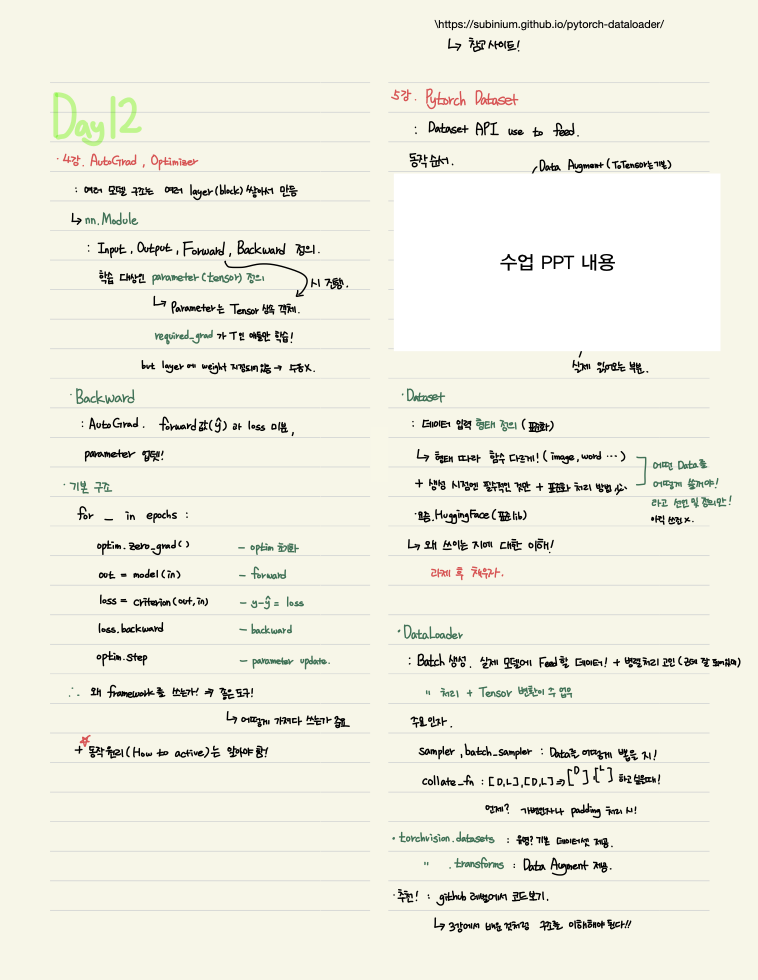 \https://subinium.github.io/pytorch-dataloader/
↳ 참고 사이트!
Day12
· 4강. AutoGrad, Optimizer
: 여러 모델 구조는 여러 layer(block) 쌓아서 만듬
↳ nn.Module
: Input, Output, Forward, Backward 정의.
학습 대상인 parameter(tensor) 정의
시 진행.
↳ Parameter는 Tensor 상속 객체.
required_grad 가 T인 애들만 학습!
but layer에 weight 지정되어있음 → 수동X.
· Backward
: AutoGrad. forward값(ŷ) 과 loss 미분,
parameter 업뎃!
· 기본 구조
for _ in epochs :
optim.zero_grad() – optim 초기화
out = model(in) – forward
loss = criterion(out,in) – y-ŷ = loss
loss.backward – backward
optim.step – parameter update.
∴ 왜 framework를 쓰는가! ⇒ 좋은 도구!
↳ 어떻게 가져다 쓰는가 중요
+ ☆동작원리(How to active)는 알아야 함!
5강. Pytorch Dataset
: Dataset API use to feed.
동작 순서.
Data Augment(ToTensor는 기본)
수업 PPT 내용
실제 읽어오는 부분.
· Dataset
: 데이터 입력 형태 정의 (표준화)
↳ 형태 따라 함수 다르게! (image, word ...)
+ 생성 시점엔 필수적인 것만 + 표준화 처리 방법
어떤 Data를
어떻게 쓸꺼야!
라고 선언 및 정의만!
아직 쓰진 X.
· 요즘. HuggingFace(표준lib)
↳ 왜 쓰이는 지에 대한 이해!
과제 후 채우자.
· DataLoader
: Batch 생성. 실제 모델에 Feed할 데이터! + 병렬처리 고민
" 처리 + Tensor 변환이 주 업무
주요 인자.
sampler, batch_sampler : Data를 어떻게 뽑을 지!
collate_fn : [D,L], [D,L] ⇒ [D], [L] 하고싶을때!
언제? 가변인자나 padding 처리 시!
· torchvision.datasets : 유명? 기본 데이터셋 제공.
" .transforms : Data Augment 제공.
· 추천! : github 레벨에서 코드보기.
↳ 3강에서 배운 것처럼 구조를 이해해야 된다!!